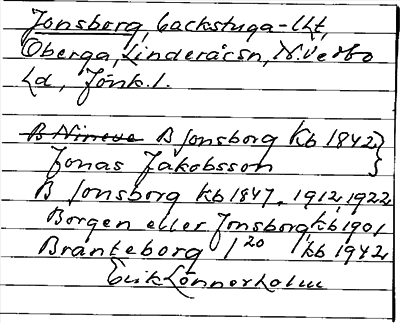 Jonsborg, backstuga-lht,
Öberga, Linderåssn, N. Vedbo
hd, Jönk. l.
B Nineve B Jonsborg kb 1842
Jonas Jakobsson
B Jonsborg kb 1847, 1912, 1922
Borgen eller Jonsborg, kb 1901
Branteborg 1/20 kb 1942
Erik Lönnerholm